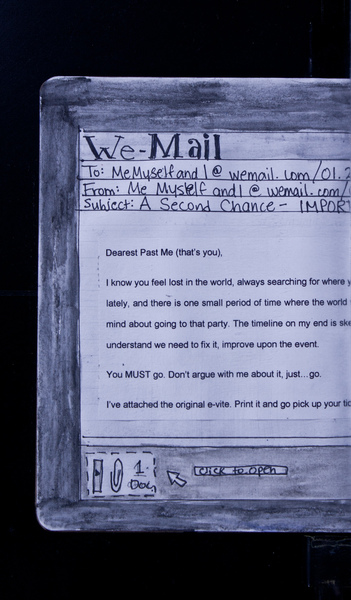 We-Mail
To: MeMyselfandI@wemail.com/01.2
From: Me Myself and I @ wemail.com/
Subject: A Second Chance - IMPORT
Dearest Past Me (that's you),
I know you feel lost in the world, always searching for where y
lately, and there is one small period of time where the world
mind about going to that party. The timeline on my end is ske
understand we need to fix it, improve upon the event.
You MUST go. Don't argue with me about it, just...go.
I've attached the original e-vite. Print it and go pick up your tic
1
Doc
Click to open